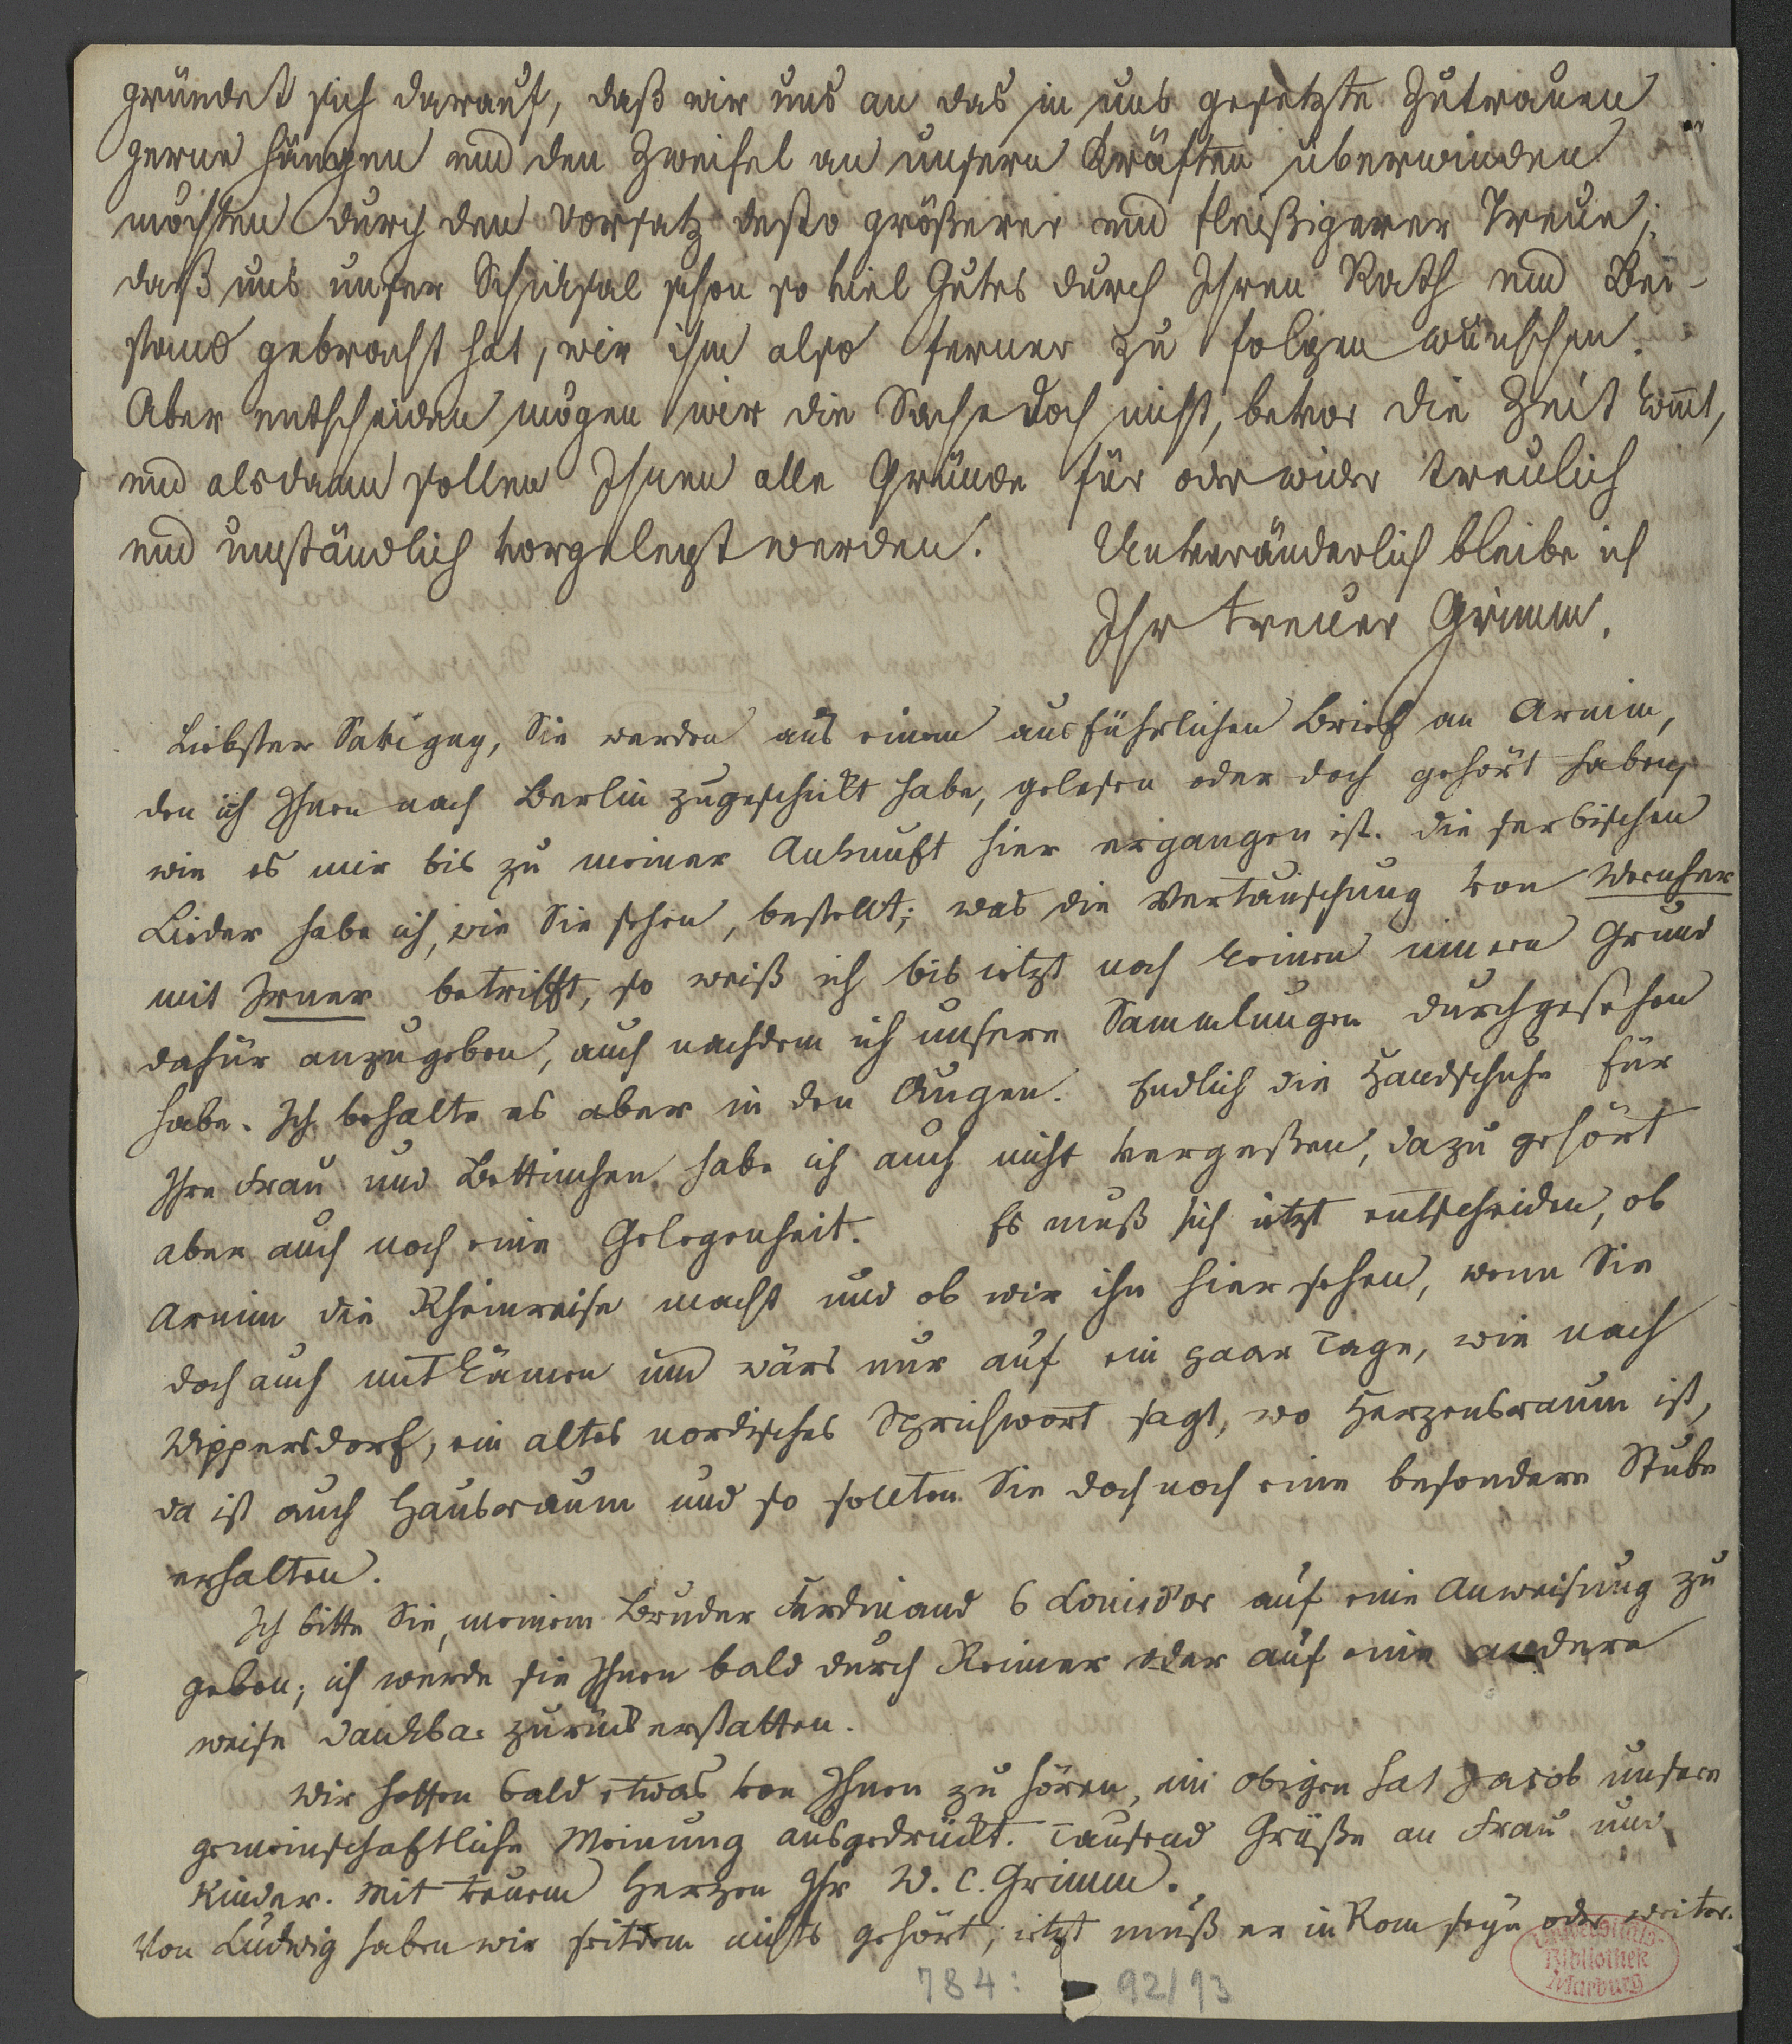 gründet sich darauf, daß wir uns an das in uns gesetzte Zutrauen
gerne hängen und den Zweifel an unsern Kräften überwinden
möchten durch den Vorsatz desto größerer und fleißigerer Treue;
daß uns unser Schicksal schon so viel Gutes durch Ihren Rath und Bei-
stand gebracht hat, wir ihm also ferner zu folgen wünschen.
Aber entscheiden mögen wir die Sache doch nicht, bevor die Zeit kom̄t,
und alsdann sollen Ihnen alle Gründe für oder wider treulich
und umständlich vorgelegt werden. Unveränderlich bleibe ich
Ihr treuer Grimm.
Liebster Savigny, Sie werden aus einem ausführlichen Brief an Arnim,
den ich Ihnen nach Berlin zugeschickt habe, gelesen oder doch gehört haben,
wie es mir bis zu meiner Ankunft hier ergangen ist. die serbischen
Lieder habe ich, wie Sie sehen, bestellt; was die Vertauschung von Wernher
mit Irner betrifft, so weiß ich bis jetzt noch keinen innern Grund
dafür anzugeben, auch nachdem ich unsere Sammlungen durchgesehen
habe. Ich behalte es aber in den Augen. Endlich die Handschuhe für
Ihre Frau und Bettinchen habe ich auch nicht vergeßen, dazu gehört
aber auch noch eine Gelegenheit. Es muß sich jetzt entscheiden, ob
Arnim die Rheinreise macht und ob wir ihn hier sehen, wenn Sie
doch auch mitkämen und wärs nur auf ein paar Tage, wie nach
Wippersdorf, ein altes nordisches Sprichwort sagt, wo Herzensraum ist,
da ist auch Hausraum und so sollten Sie doch noch eine besondere Stube
erhalten.
Ich bitte Sie, meinem Bruder Ferdinand 6 Louisd'or auf eine Anweisung zu
geben; ich werde sie Ihnen bald durch Reimer oder auf eine andere
weise dankbar zurückerstatten.
Wir hoffen bald etwas von Ihnen zu hören, im obigen hat Jacob unsere
gemeinschaftliche Meinung ausgedrückt. Tausend Grüße an Frau und
Kinder. Mit treuem Herzen Ihr W. C. Grimm.
Von Ludwig haben wir seitdem nichts gehört; jetzt muß er in Rom seyn oder weiter.
784: 92/93
Universitäts-
Bibliothek
Marburg